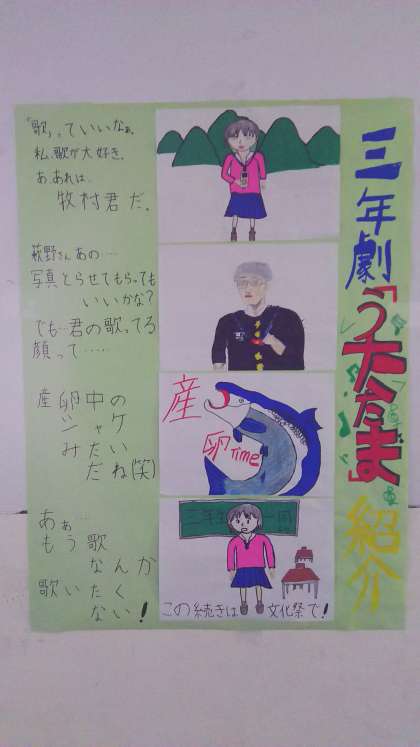 三年劇「うた魂」紹介
「歌」っていいなぁ。
私、歌が大好き。
あ、あれは…
牧村君だ。
萩野さんあの…
写真とらせてもらっても
いいかな?
でも…君の歌ってる
顔って……
産卵中の
シャケ
みたい
だね(笑)
産
卵Time
あぁ…
もう歌
なんか
歌いたく
ない!
三年生
この続きは文化祭で!